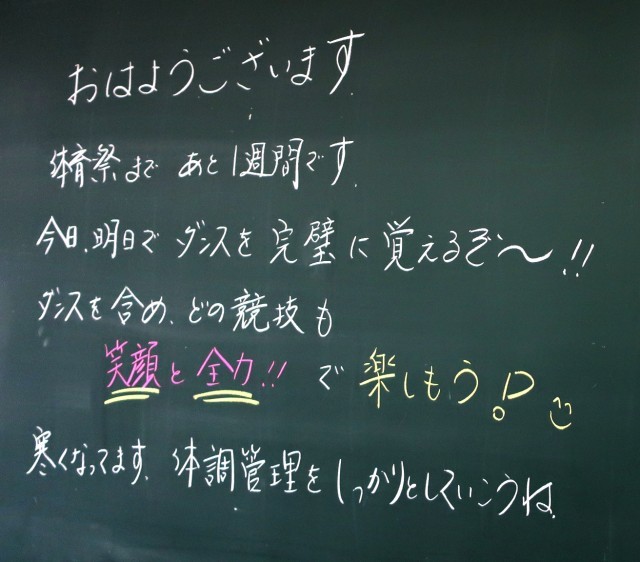 おはようございます.
体育祭まで あと1週間です.
今日.明日で ダンスを 完璧に覚えるぞ〜!!
ダンスを含め、どの競技も
笑顔と全力!!で 楽しもう!
寒くなってます.体調管理をしっかりとしていこうね.